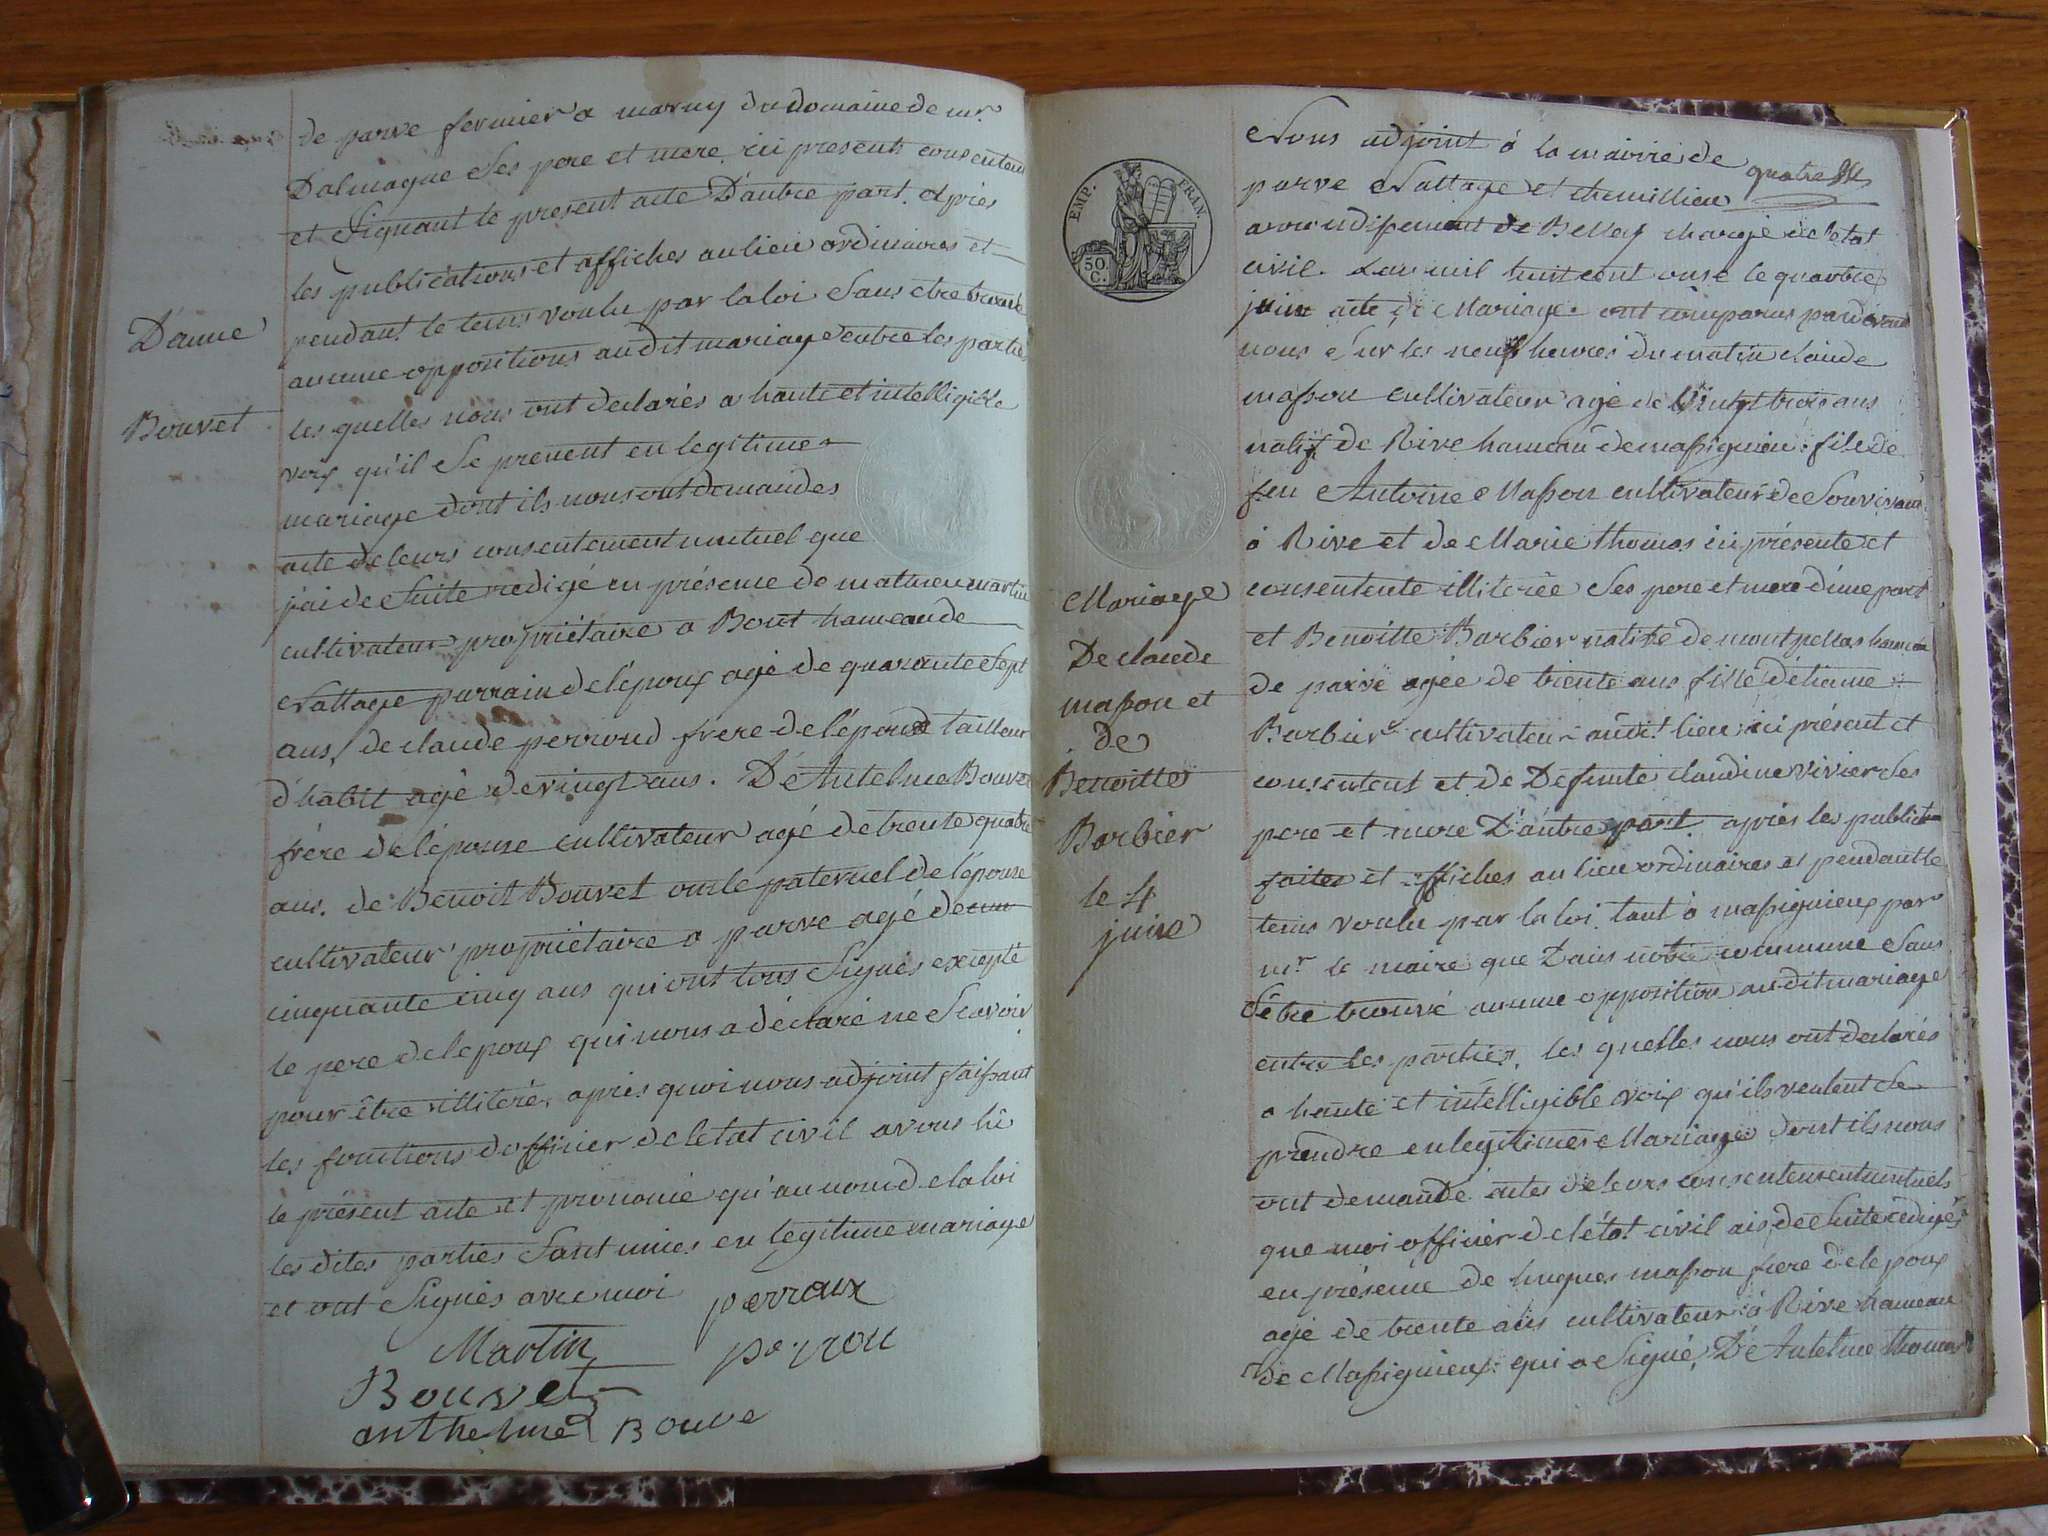 de parve fermier a marny du domaine de mr
Dalmagne Ses pere et mere, ici presents consentens
et Signant le present acte D'autre part. après
les publications et affiches au lieu ordinaires et
pendant le tems voulu par la loi Sans être trouvé
aucune oppositions au dit mariage entre les parties
les quelles nous ont declarés a haute et intelligible
voix qu'il Se prenent en legitime
mariage dont ils nous ont demandes
acte de leurs consentement mutuel que
j'ai de Suite redigé en présence de mathieu martin
cultivateur propriétaire a Bont hameau de
Nattage parrain de l'époux agé de quarante Sept
ans, de claude perroud frere de l'époux tailleur
d'habit agé de vingt ans. De Antelme Bouvet
frère de l'épouse cultivateur agé de trente quatre
ans. de Benoit Bouvet oncle paternel de l'épouse
cultivateur propriétaire a parve agé de
cinquante cinq ans qui ont tous Signés excepté
le pere de lepoux qui nous a déclaré ne Scavoir
pour être illitéré, après quoi nous adjoint faissant
les fonctions d'officier de letat civil avons lû
le présent acte et prononcé qu'au nom de la loi
les dites parties Sont unies en legitime mariage
et ont Signés avec moi
perroux
Martin
perrou
Bouvet
anthelme Bouve
D'anne
Bouvet
EMP. FRAN.
50 C.
Mariage
De claude
masson et
de
Benoitte
Barbier
le 4
juin
quatre
Nous adjoint à la mairie de
parve Nattage et chemillieu
arrondissement de Belley chargé de letat
civil. Lan mil huit cent onse le quatre
juin acte de Mariage. ont comparus pardevant
nous Sur les neuf heures du matin claude
masson cultivateur agé de Vingt trois ans
natif de Rive hameau de massignieu. fils de
feu Antoine Masson cultivateur de Son vivant
à Rive et de Marie thomas ici présente et
consentente illiterée Ses pere et mere d'une part
et Benoitte Barbier native de montpellas hameau
de parve agée de trente ans fille détienne
Barbier cultivateur audit lieu ici présent et
consentent et de Defunte claudine vivier Ses
pere et mere D'autre part. après les publications
faites et affiches au lieu ordinaires et pendant le
tems voulu par la loi tant à massignieux par
mr le maire que Dans notre commune Sans
S'être trouvé aucune opposition au dit mariage
entre les parties, les quelles nous ont declarés
a haute et intelligible voix qu'ils veulent Se
prendre en legitimes Mariage dont ils nous
ont demandé actes de leurs consentement mutuels
que moi officier de l'état civil ais de Suite redigés
en présence de hugues masson frere de lepoux
agé de trente ans cultivateur à Rive hameau
de Massignieux qui a Signé, De Antelme thomas